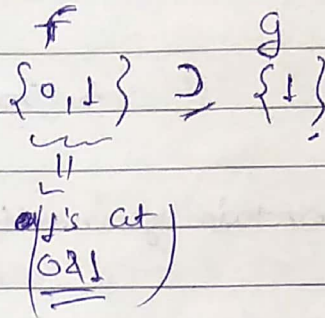 f g
{0,1} ⊃ {1}
||
(1's at
0&1)